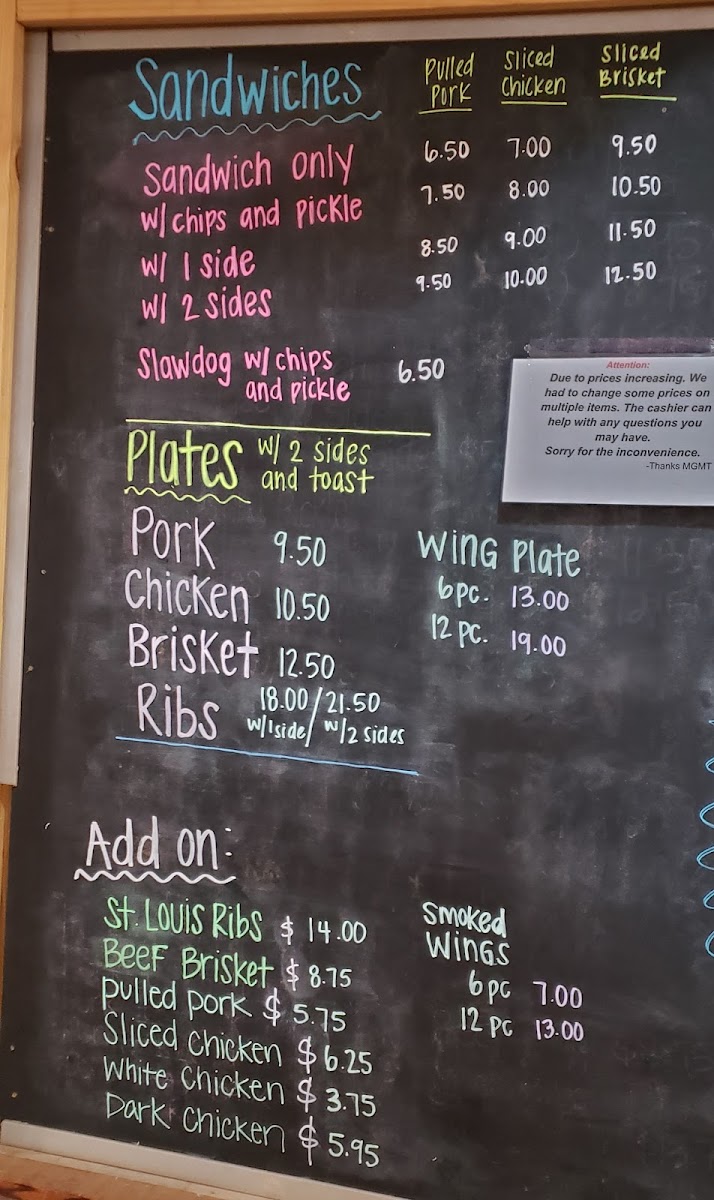 Sandwiches
Pulled Pork
Sliced Chicken
Sliced Brisket
Sandwich only 6.50 7.00 9.50
w/ chips and pickle 7.50 8.00 10.50
w/ 1 side 8.50 9.00 11.50
w/ 2 sides 9.50 10.00 12.50
Slawdog w/ chips 6.50
and pickle
Attention:
Due to prices increasing. We
had to change some prices on
multiple items. The cashier can
help with any questions you
may have.
Sorry for the inconvenience.
-Thanks MGMT
Plates w/ 2 sides
and toast
Pork 9.50
Chicken 10.50
Brisket 12.50
Ribs 18.00/21.50
w/1side/ w/2 sides
Wing Plate
6pc. 13.00
12 pc. 19.00
Add on:
St. Louis Ribs $ 14.00
Beef Brisket $ 8.75
pulled pork $ 5.75
Sliced chicken $ 6.25
White chicken $ 3.75
Dark chicken $ 5.95
Smoked
Wings
6 pc 7.00
12 pc 13.00